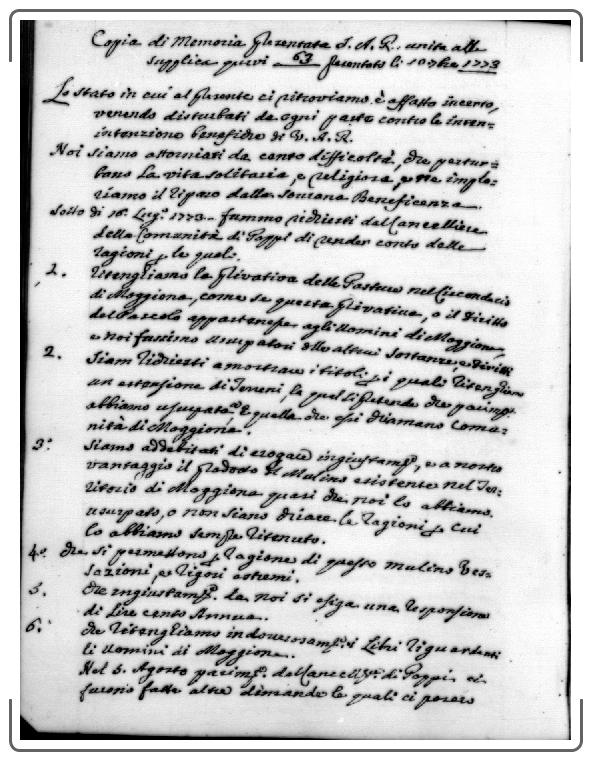 Copia di Memoria presentata S. A. R. unita alla
supplica 63 presentata li 10 7bre 1773
Lo stato in cui al presente ci ritroviamo è affatto incerto,
venendo disturbati da ogni parte contro le inten-
intenzione benefiche di V. A. R.
Noi siamo attorniati da cento difficoltà, che pertur-
bano la vita solitaria, e religiosa, e implo-
riamo il riparo dalla Sovrana Beneficenza.
Sotto di 16. Lug.º 1773. fummo richiesti dal Cancelliere
della Comunità di Poppi di render conto delle
ragioni p. le quali.
1. Ritenghiamo la privativa delle Pasture nel Circondario
di Moggiona, come se questa privativa, o il diritto
del Pascolo appartenesse agli Uomini di Moggiona,
e noi fussimo usurpatori delle altrui sostanze, e diritti
2. Siam richiesti a mostrare i titoli p. i quali ritenghiamo
un estensione di Terreni, la quale si pretende che
abbiamo usurpata a quella che essi chiamano Comu-
nità di Moggiona.
3º. Siamo addebitati di erogare ingiustam.e, e a nostro
vantaggio il prodotto di Mulino esistente nel Ter-
ritorio di Moggiona quasi che noi lo abbiamo
usurpato, o non siano chiare le ragioni p. cui
lo abbiamo sempre ritenuto.
4º. che si permettono p. ragione di questo mulino ves-
sazioni, e rigori estremi.
5. che ingiustam.e da noi si esiga una responsione
di Lire cento Annue.
6. che ritenghiamo indoverosam.e i Libri riguardanti
li Uomini di Moggiona.
Nel 5. Agosto parim.e dal Cancell.re di Poppi ci
furono fatte altre dimande le quali ci posero